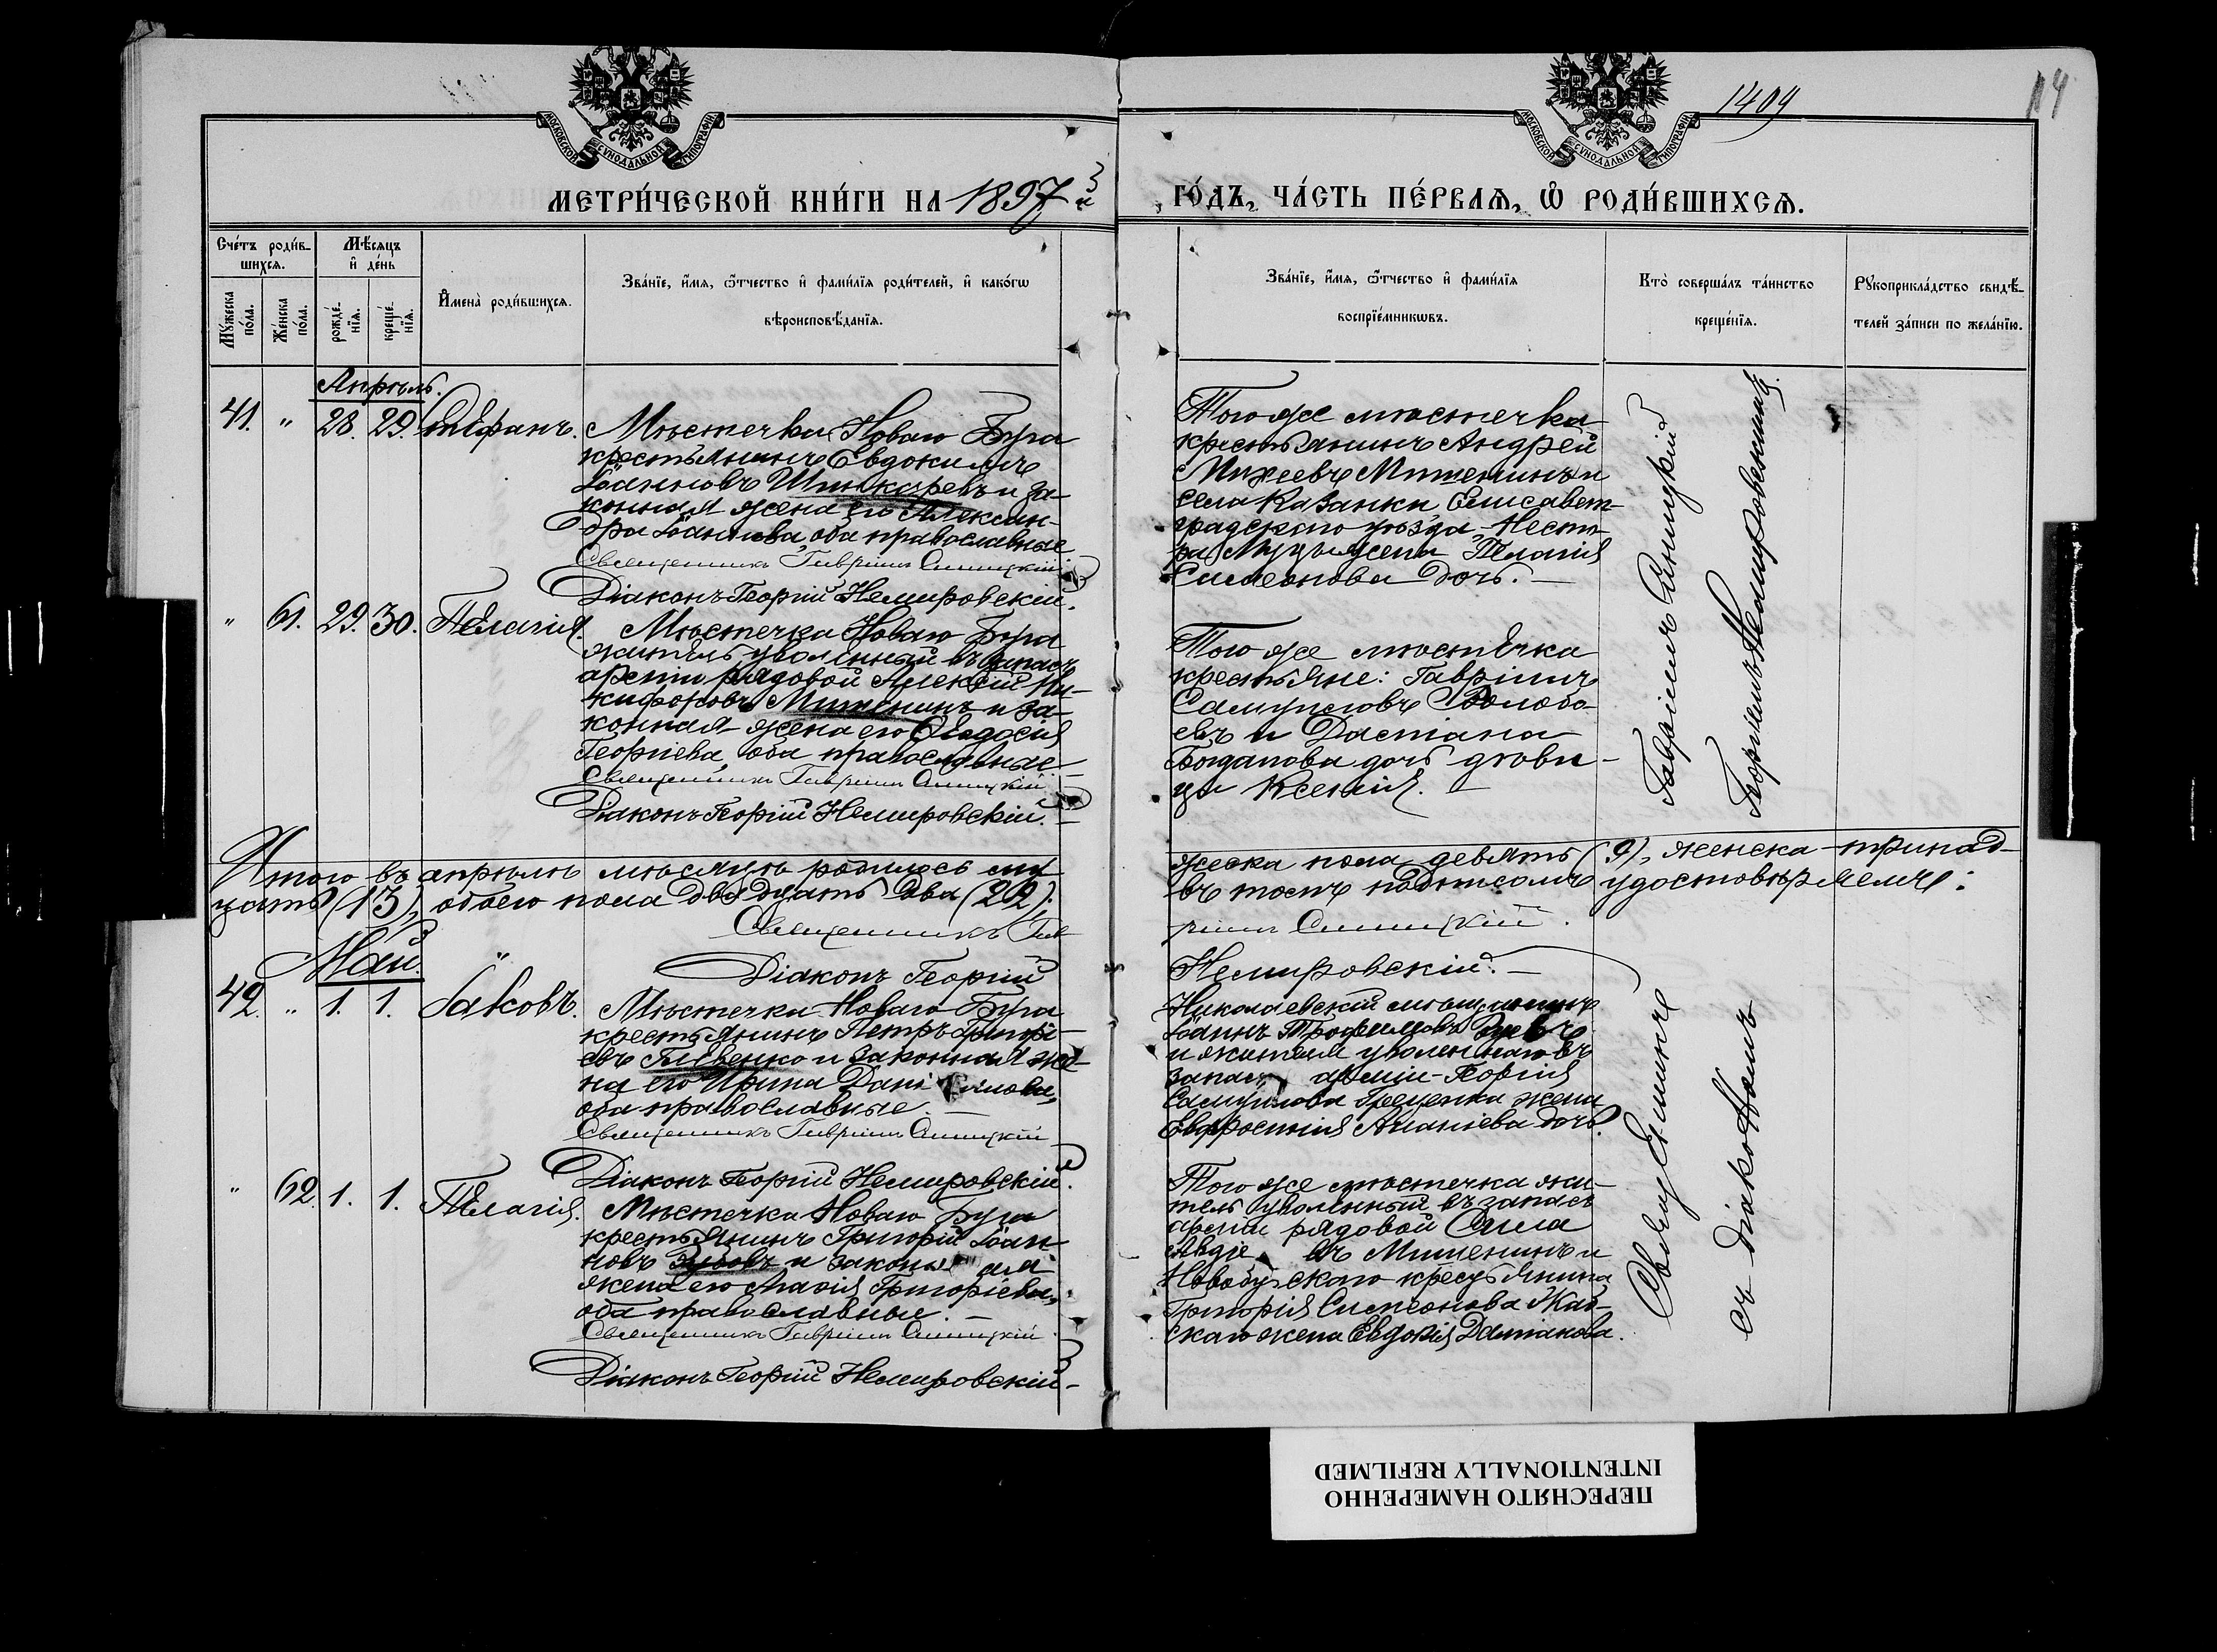 1409
14
МОСКОВСКОЙ СѴНОДАЛЬНОЙ ТИПОГРАФІИ
МОСКОВСКОЙ СѴНОДАЛЬНОЙ ТИПОГРАФІИ
МЕТРИ́ЧЕСКОЙ КНИ́ГИ НА 1897й
ГО́ДЪ, ЧА́СТЬ ПЕ́РВАѦ, Ѡ҆ РОДИ́ВШИХСѦ.
Сче́тъ роди́в-
шихсѧ.
Мѣ́сѧцъ
и҆ де́нь
Мꙋ́жеска
по́ла.
Же́нска
по́ла.
рожде́-
нїѧ.
креще́-
нїѧ.
И҆мена̀ роди́вшихсѧ.
Зва́нїе, и҆́мѧ, ѻ҆́тчество и҆ фами́лїѧ роди́телей, и҆ како́гѡ
вѣроисповѣ́данїѧ.
Зва́нїе, и҆́мѧ, ѻ҆́тчество и҆ фами́лїѧ
воспрїе́мникѡвъ.
Кто̀ соверша́лъ та́инство
креще́нїѧ.
Рꙋкоприкла́дство свидѣ́-
телей за́писи по жела́нїю.
Апрѣль.
41. " 28. 29. Стефанъ.
Мѣстечка Новаго Буга
крестьянинъ Евдокимъ
Іоанновъ Шинкаревъ и за-
конная жена его Алексан-
дра Іоаннова, оба православные
Священникъ Гавріилъ Синицкій
Діаконъ Георгій Немировскій.
Того же мѣстечка
крестьянинъ Андрей
Михеевъ Митенинъ и
села Казанки Елисавет-
градскаго уѣзда, Несто-
ра жена Пелагія
Симеонова дочь.—
" 61. 29. 30. Пелагія.
Мѣстечка Новаго Буга
житель уволенный въ запасъ
арміи рядовой Алексій Ни-
кифоровъ Митенинъ и за-
конная жена его Ѳеодосія
Георгіева, оба православные—
Священникъ Гавріилъ Синицкій
Діаконъ Георгій Немировскій.—
Того же мѣстечка
крестьяне: Гавріилъ
Самуиловъ
евъ и Даміана
Богданова дочь дѣви-
ца Ксенія.—
Гавріилъ Синицкій
Георгіемъ Немировскимъ.
Итого въ апрѣлѣ мѣсяцѣ родилось му
жеска пола девять (9), женска—тринад-
цать (13), обоего пола двадцать два (22);
въ томъ подписомъ удостовѣряемъ:
Священникъ Гав
ріилъ Синицкій.
Діаконъ Георгій
Немировскій.—
Май.
42. " 1. 1. Іаковъ.
Мѣстечка Новаго Буга
крестьянинъ Петръ Григорі-
евъ Гливенко и законная же-
на его Ирина Даніилова,
оба православные.—
Священникъ Гавріилъ Синицкій
Діаконъ Георгій Немировскій.
Николаевскій мѣщанинъ
Іоаннъ Трофимовъ
и жителя уволеннаго въ
запасъ арміи—Георгія
Самуилова Греценка жена
Евфросинія Ананіева дочь.
" 62. 1. 1. Пелагія.
Мѣстечка Новаго Буга
крестьянинъ Григорій Іоан-
новъ Зубовъ и законная
жена его Агаѳія Григоріева,
оба православные.—
Священникъ Гавріилъ Синицкій
Діаконъ Георгій Немировскій—
Того же мѣстечка жи-
тель уволенный въ запасъ
арміи рядовой Сила
Авдіевъ Митенинъ и
Новобугскаго крестьянина
Григорія Симеонова
жена Евдокія Даміанова.
Священникъ
съ діакономъ
ПЕРЕСНЯТО НАМЕРЕННО
INTENTIONALLY REFILMED